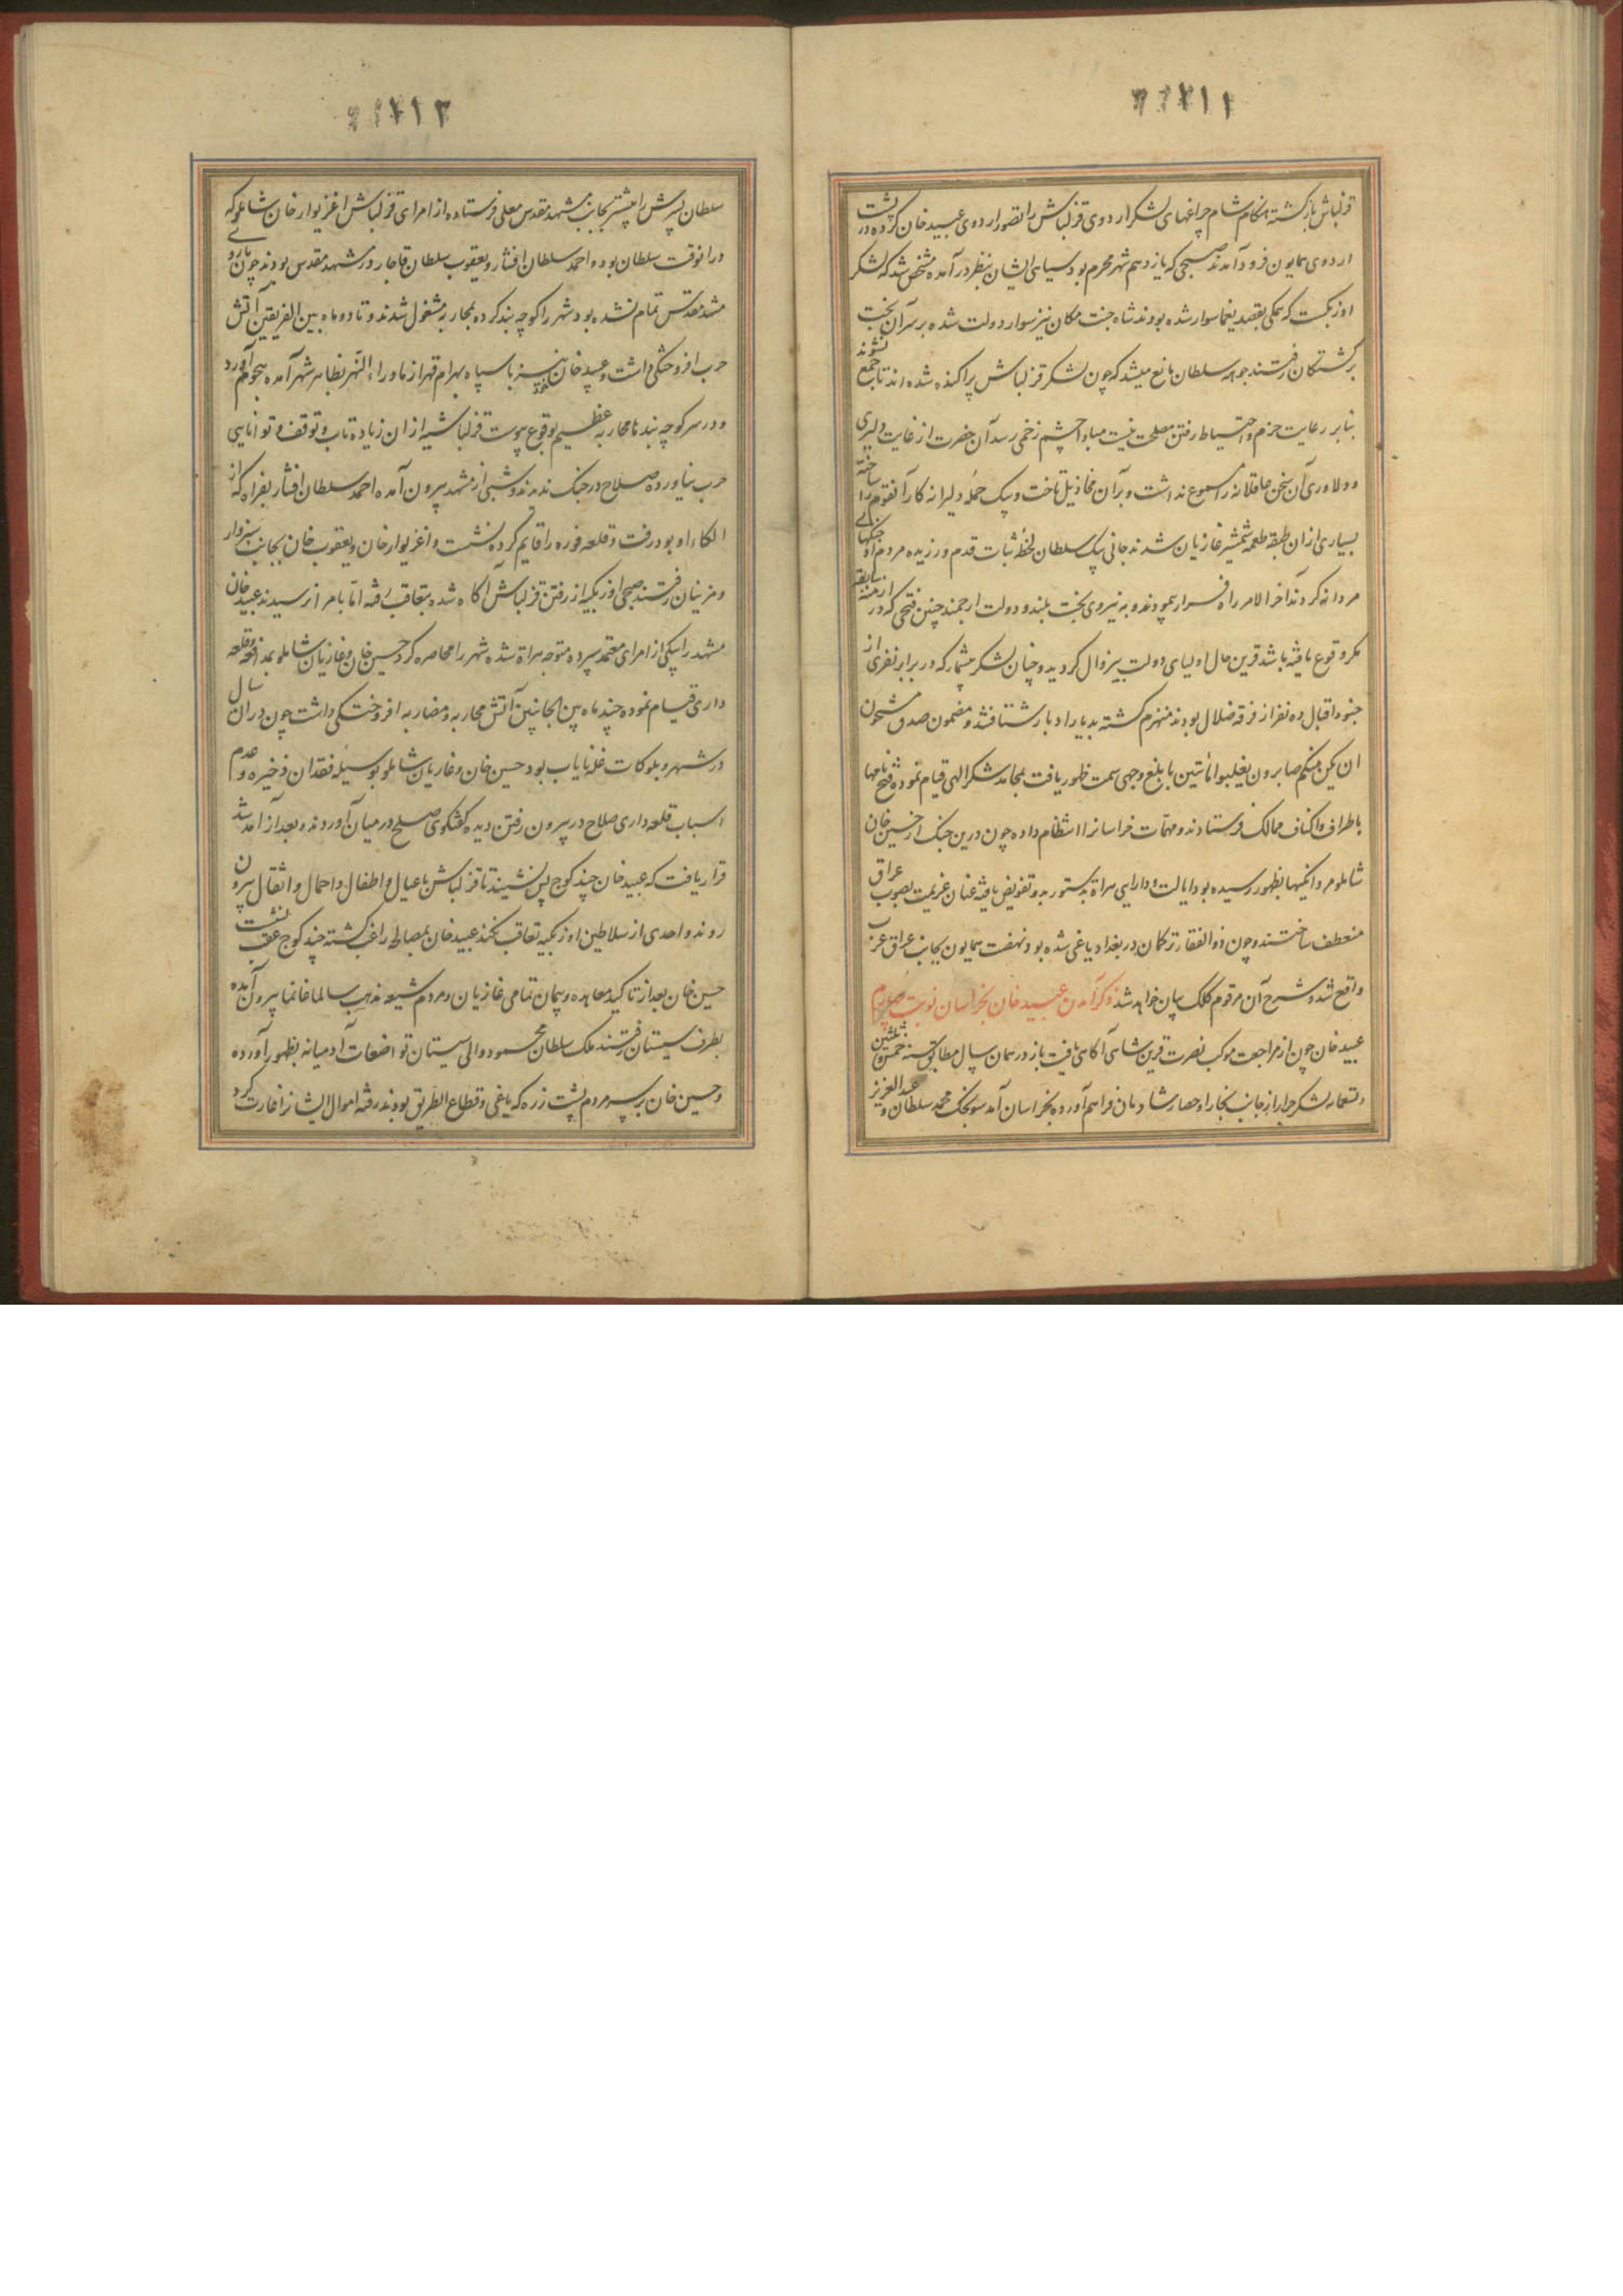 ۱۱۲
قزلباش بازگشته هنگام شام چراغهای لشکر اردوی قزلباش را تصور اردوی عبید خان کرده در پشت
اردوی همایون فرود آمدند صبحی که یازدهم شهر محرم بود سیاهی ایشان بنظر درآمده مشخص شد که لشکر
اوزبکست که همگی بقصد یغما سوار شده بودند شاه جنت مکان نیز سوار دولت شده بر سر آن بخت
برگشتگان رفتند جوهه سلطان مانع میشد که چون لشکر قزلباش پراکنده شده اند تا جمع نشوند
بنابر رعایت حزم و احتیاط رفتن مصلحت نیست مبادا چشم زخمی رسد آن حضرت از غایت دلیری
و دلاوری آن سخن عاقلانه را مسموع نداشت و بر آن مخاذیل تاخت و بیک حمله دلیرانه کار آنقوم را ساخته
بسیاری از ان طبقه طعمه شمشیر غازیان شدند جانی بیک سلطان لحظه ثبات قدم ورزیده مردم او جنگهای
مردانه کردند آخر الامر راه فرار پیمودند و به نیروی بخت بلند و دولت ارجمند چنین فتحی که در ازمنه سابقه
مکر وقوع یافته باشد قرین حال اولیای دولت بیزوال گردید و چنان لشکر بیشمار که در برابر نفری از
جنود اقبال ده نفر از فرقه ضلال بودند منهزم گشته بدیار ادبار شتافتند و مضمون صدق مشحون
ان یکن منکم صابرون یغلبوا مائتین بابلغ وجهی سمت ظهور یافت بمحامد شکر الهی قیام نموده فتح نامها
باطراف و اکناف ممالک فرستادند و مهمات خراسانرا انتظام داده چون درین جنک از حسین خان
شاملو مردانگیها بظهور رسیده بود ایالت و دارایی هراة بدستور بدو تفویض یافته عنان عزیمت بصوب عراق
منعطف ساختند و چون ذوالفقار ترکمان در بغداد یاغی شده بود نهضت همایون بجانب عراق عرب
واقع شد و شرح آن مرقوم کلک بیان خواهد شد ذکر آمدن عبید خان بخراسان نوبت چهارم
عبید خان چون از مراجعت موکب نصرت قرین شاهی آگاهی یافت باز در همان سال مطابق سنه خمس و ثلثین
و تسعمایه لشکر جرار از جانب بخارا و حصار شادمان فراهم آورده بخراسان آمد سونجک محمد سلطان و عبدالعزیز
۱۱۳
سلطان پسرش را پیشتر بجانب مشهد مقدس معلی فرستاده از امرای قزلباش اغزیوار خان شاملو که
در انوقت سلطان بود و احمد سلطان افشار و یعقوب سلطان قاجار در مشهد مقدس بودند چون باروی
مشهد مقدس تمام نشده بود شهر را کوچه بند کرده بمحاربه مشغول شدند و تا دو ماه بین الفریقین آتش
حرب افروختگی داشت و عبید خان نیز با سپاه بهرام قهر از ماوراء النهر بظاهر شهر آمده هجوم آورد
و در سر کوچه بندها محاربه عظیم بوقوع پیوست قزلباشیه از ان زیاده تاب و توقف و توانایی
حرب نیاورده صلاح در جنک ندیدند و شبی از مشهد بیرون آمده احمد سلطان افشار بفراه که از
الکاء او بود رفت و قلعه فوره را قایم کرده نشست و اغزیوار خان و یعقوب خان بجانب سبزوار
و مزینان رفتند صبحی اوزبکیه از رفتن قزلباش آگاه شده بتعاقب رفته اما بامرا نرسیدند عبید خان
مشهد را بیکی از امرای معتمد سپرده متوجه هراة شده شهر را محاصره کرد حسین خان و غازیان شاملو بمدافعه و قلعه
داری قیام نموده چند ماه بین الجانبین آتش محاربه و مضاربه افروختگی داشت چون در ان سال
در شهر و بلوکات غله نایاب بود حسین خان و غازیان شاملو بوسیله فقدان ذخیره و عدم
اسباب قلعه داری صلاح در بیرون رفتن دیده گفتگوی صلح در میان آوردند و بعد از آمد شد
قرار یافت که عبید خان چند کوچ پس نشیند تا قزلباش با عیال و اطفال و احمال و اثقال بیرون
روند و احدی از سلاطین اوزبکیه تعاقب نکند عبید خان بمصالحه راغب گشته چند کوچ عقب نشست
حسین خان بعد از تاکید معاهده و پیمان تمامی غازیان و مردم شیعه مذهب سالما غانما بیرون آمده
بطرف سیستان رفتند ملک سلطان محمود والی سیستان تواضعات آدمیانه بظهور آورده
و حسین خان بر سر مردم پشت زره که یاغی و قطاع الطریق بودند رفته اموال ایشانرا غارت کرد